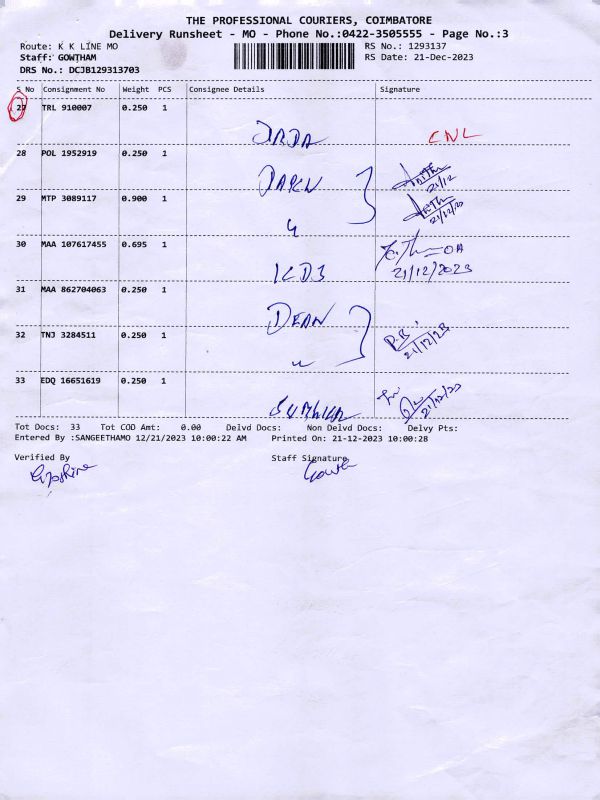 THE PROFESSIONAL COURIERS, COIMBATORE
Delivery Runsheet - MO - Phone No.:0422-3505555 - Page No.:3
Route: K K LINE MO
RS No.: 1293137
Staff: GOWTHAM
RS Date: 21-Dec-2023
DRS No.: DCJB129313703
S No Consignment No Weight PCS Consignee Details Signature
27 TRL 910007 0.250 1
CNL
28 POL 1952919 0.250 1
21/12
29 MTP 3089117 0.900 1
21/12/23
30 MAA 107617455 0.695 1
ICDS
21/12/2023
31 MAA 862704063 0.250 1
DEAN
32 TNJ 3284511 0.250 1
P.B.
21/12/23
33 EDQ 16651619 0.250 1
21/12/23
Tot Docs: 33 Tot COD Amt: 0.00 Delvd Docs: Non Delvd Docs: Delvy Pts:
Entered By :SANGEETHAMO 12/21/2023 10:00:22 AM Printed On: 21-12-2023 10:00:28
Verified By Staff Signature